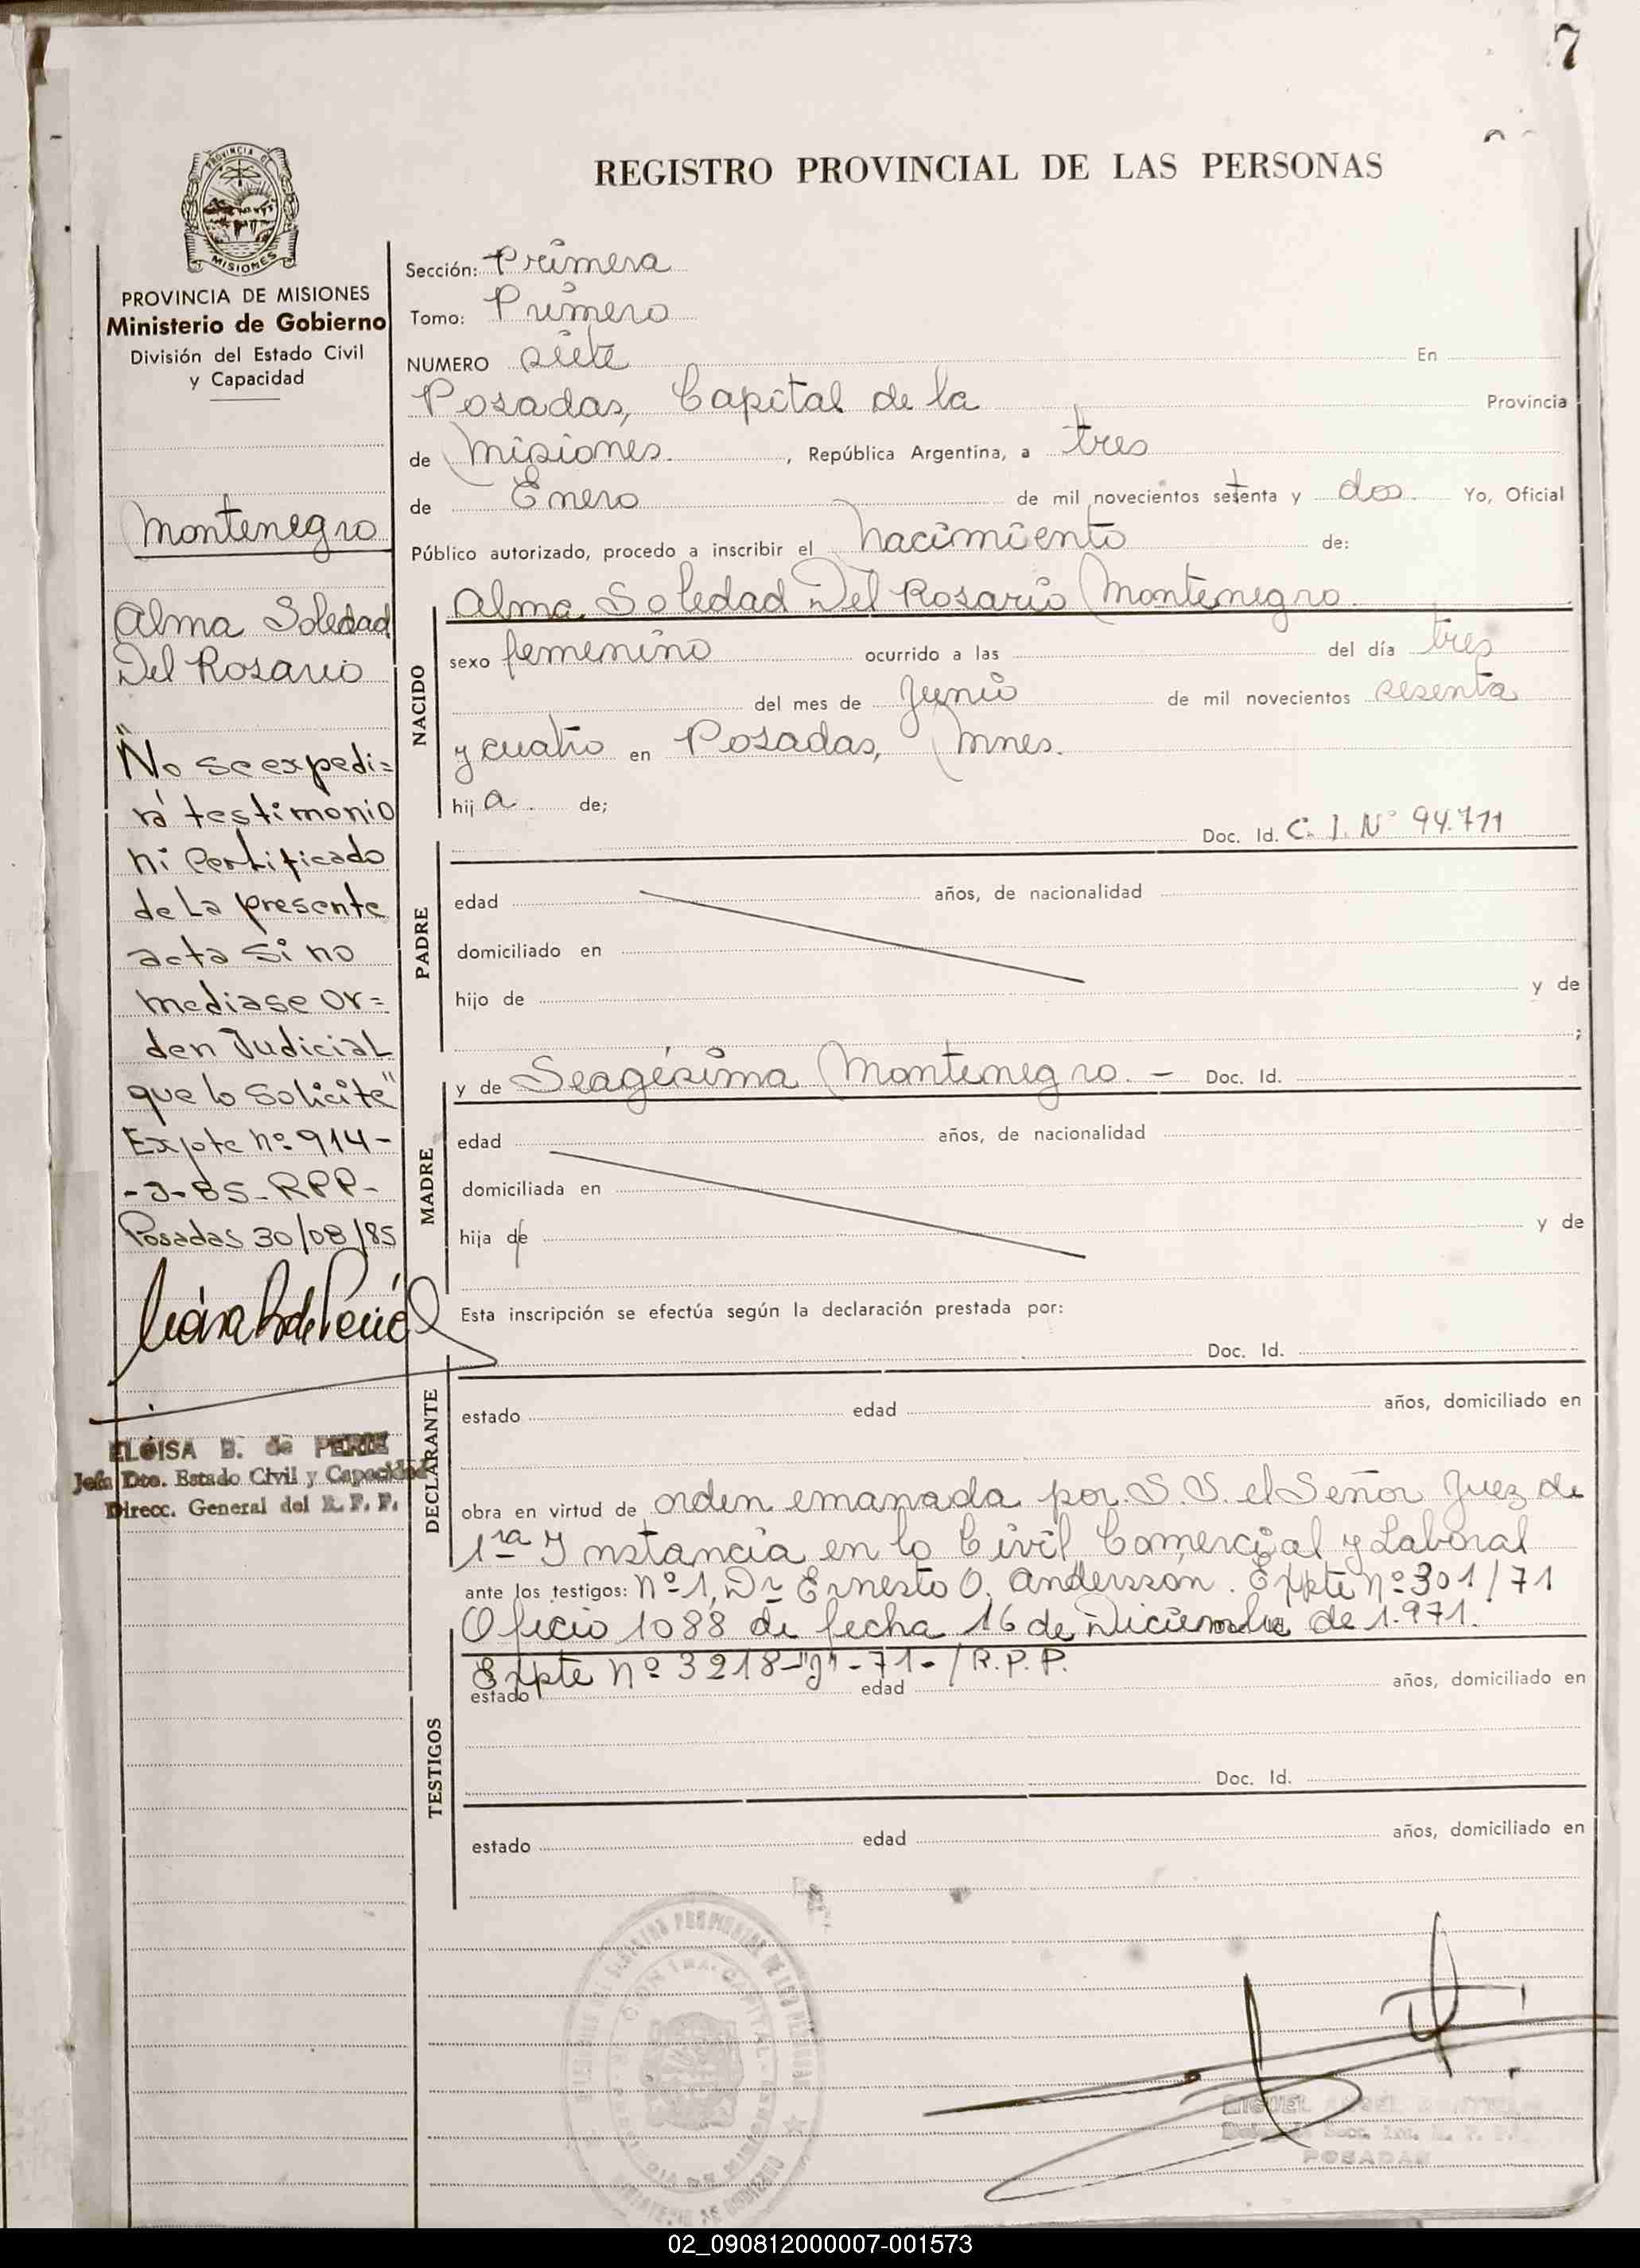 7
REGISTRO PROVINCIAL DE LAS PERSONAS
PROVINCIA DE
MISIONES
PROVINCIA DE MISIONES
Ministerio de Gobierno
División del Estado Civil
y Capacidad
Montenegro
Alma Soledad
Del Rosario
"No se expedi=
rá testimonio
ni certificado
de La presente
acta si no
mediase or=
den Judicial
que lo solicite"
Expte nº 914-
-J-85-RPP-
Posadas 30/08/85
ELOISA B. de PERIE
Jefa Dto. Estado Civil y Capacidad
Direcc. General del R. P. P.
Sección: Primera
Tomo: Primero
NUMERO siete En
Posadas, Capital de la Provincia
de Misiones , República Argentina, a tres
de Enero de mil novecientos setenta y dos. Yo, Oficial
Público autorizado, procedo a inscribir el nacimiento de:
NACIDO
Alma Soledad Del Rosario Montenegro
sexo femenino ocurrido a las del día tres
del mes de Junio de mil novecientos sesenta
y cuatro en Posadas, Mnes.
hij a. de;
PADRE
Doc. Id. C. I. Nº 94.771
edad años, de nacionalidad
domiciliado en
hijo de y de
;
MADRE
y de Seagésima Montenegro. — Doc. Id.
edad años, de nacionalidad
domiciliada en
hija de y de
Esta inscripción se efectúa según la declaración prestada por:
DECLARANTE
Doc. Id.
estado edad años, domiciliado en
obra en virtud de orden emanada por S.S. el Señor Juez de
1ra Instancia en lo Civil Comercial y Laboral
ante los testigos: nº 1, Dr Ernesto O. Andersson. Expte nº 301/71
Oficio 1088 de fecha 16 de Diciembre de 1.971.
TESTIGOS
Expte nº 3218-"J"-71-/R.P.P.
estado edad años, domiciliado en
Doc. Id.
estado edad años, domiciliado en
MIGUEL
POSADAS
02_090812000007-001573